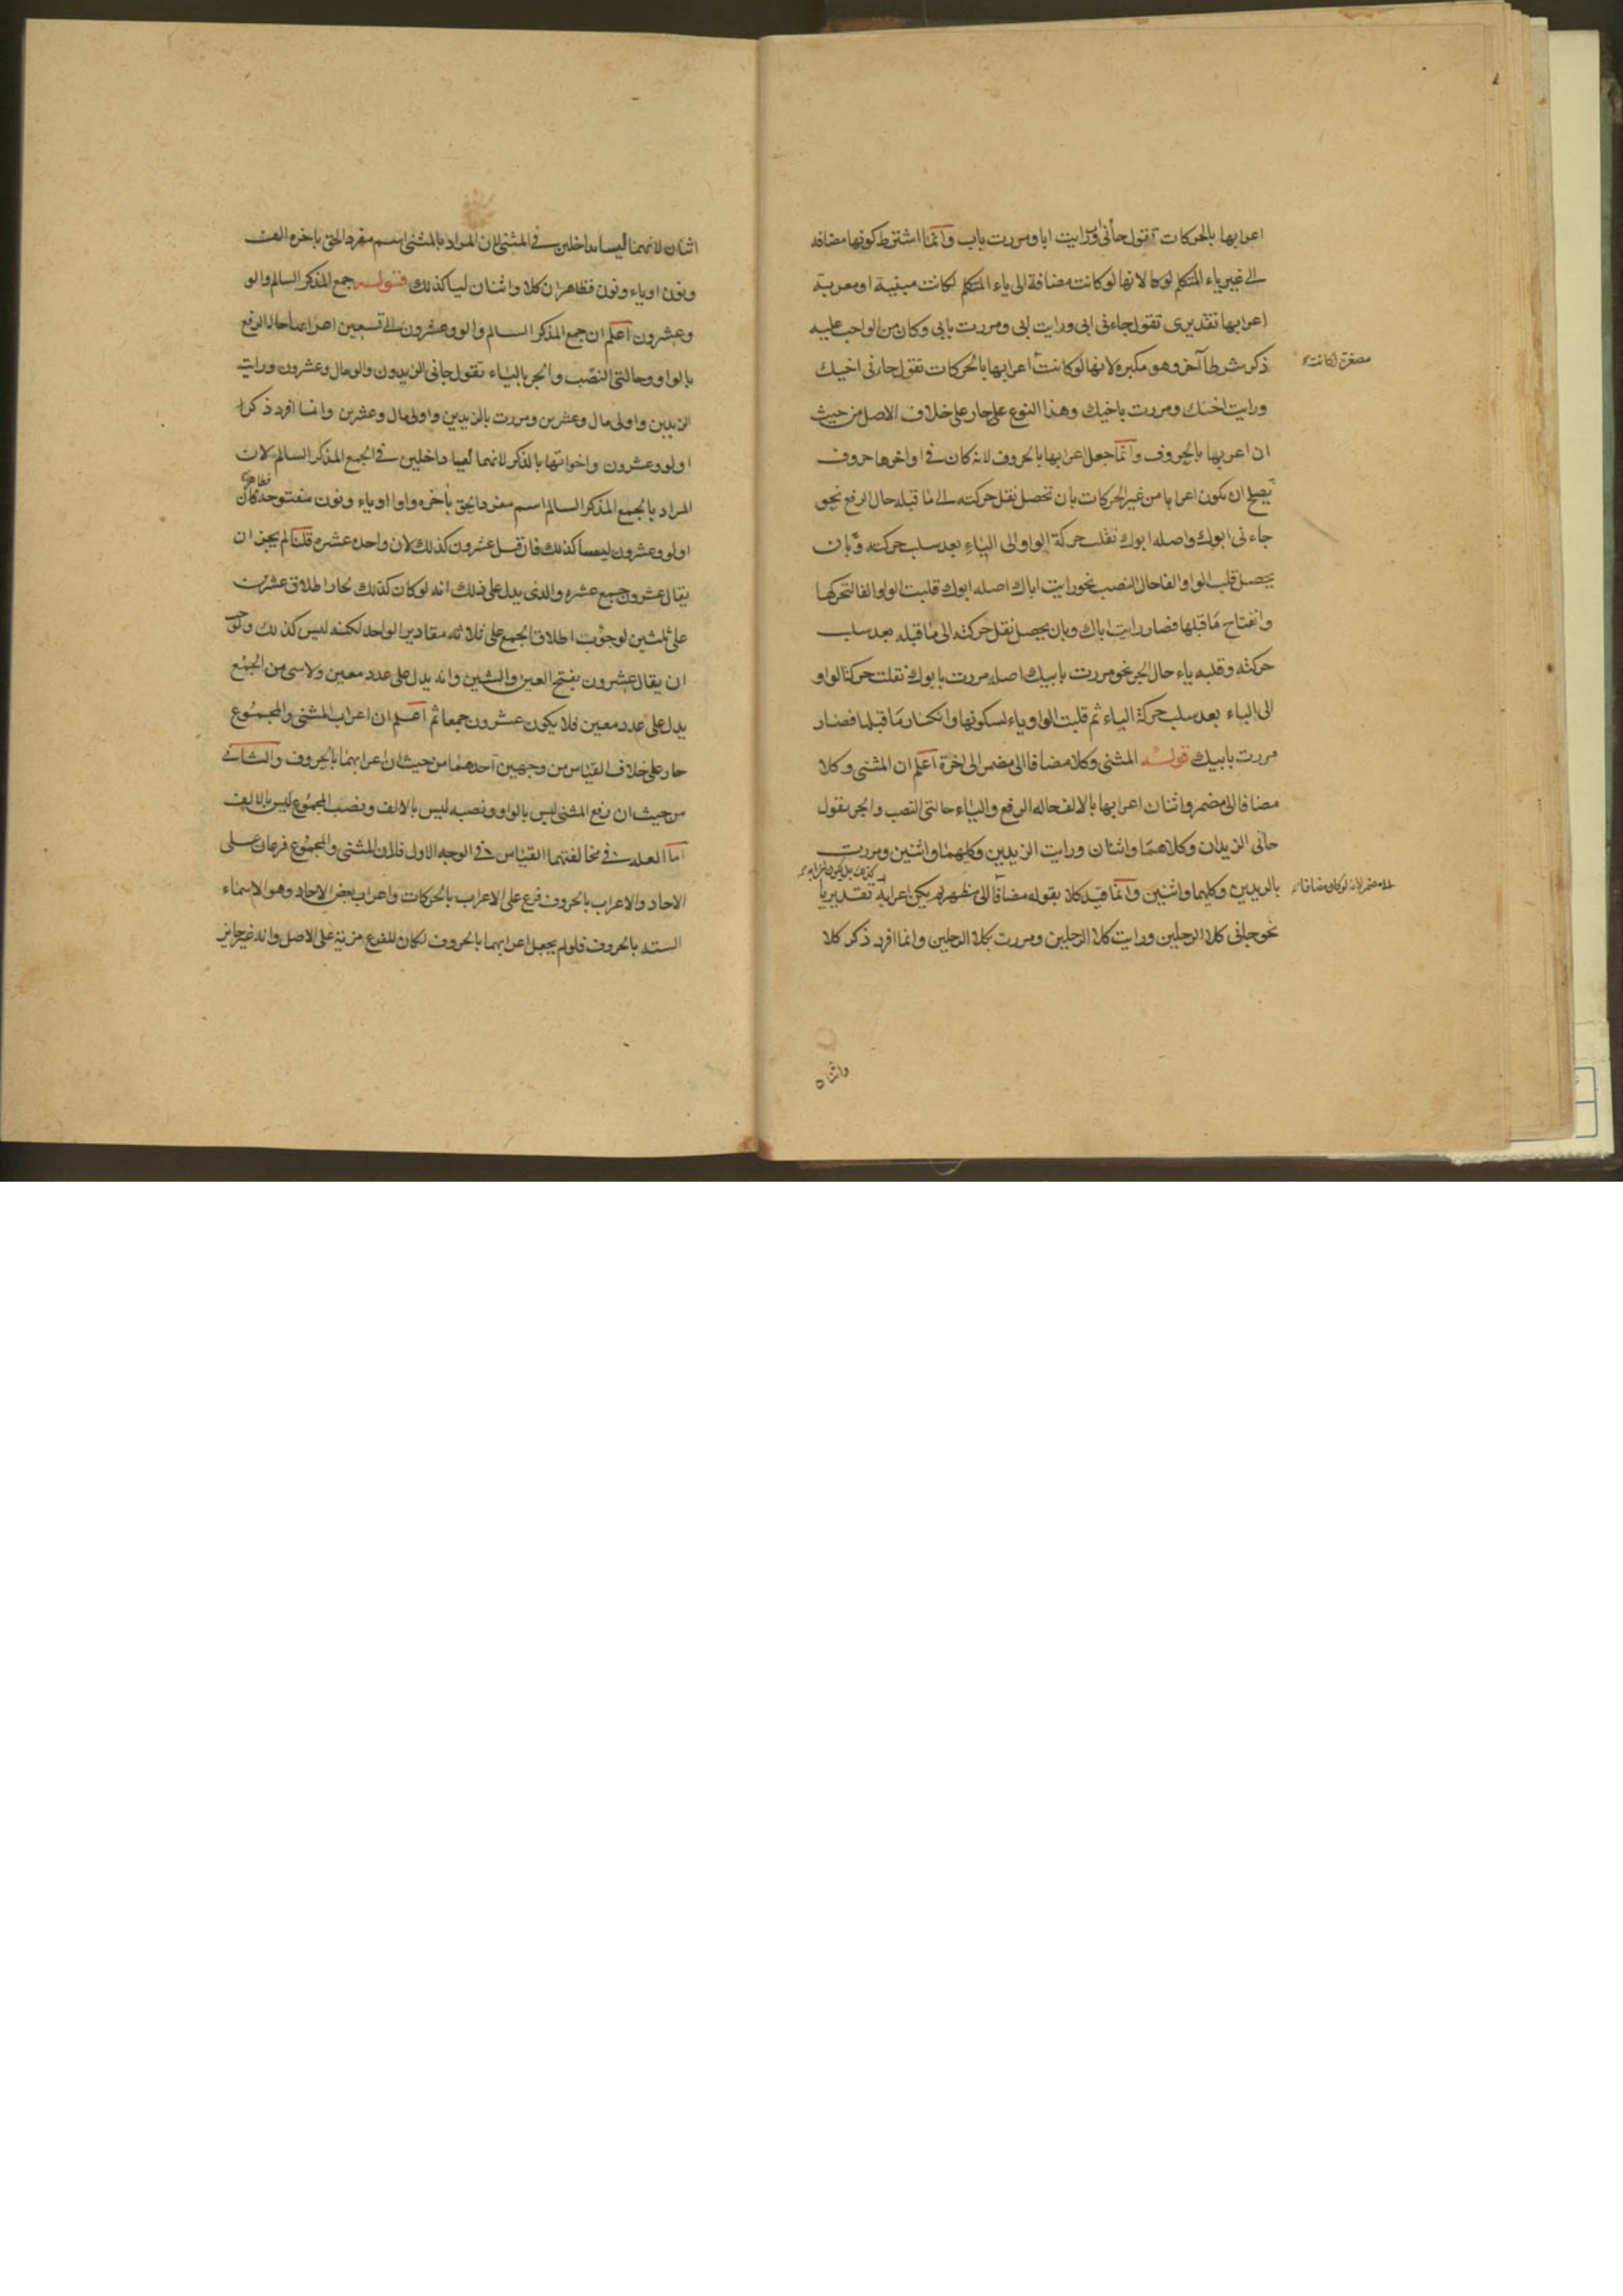 اعرابها بالحركات تقول جأنى اب ورايت ابا ومررت باب وانما اشترط كونها مضافه
الى غير ياء المتكلم لانها لوكانت مضافة الى ياء المتكلم لكانت مبنية او معربة
اعرابها تقديرى تقول جاءنى ابى ورايت ابى ومررت بابى وكان من الواجب عليه
ذكر شرطا آخر وهو مكبره لانها لوكانت اعرابها بالحركات تقول جاءنى اخيك
مصغرة لكانت
ورايت اخيك ومررت باخيك وهذا النوع على جار على خلاف الاصل من حيث
ان اعربها بالحروف وانما جعل اعرابها بالحروف لانه كان فى اواخرها حروف
يصلح ان يكون اعرابا من غير الحركات بان تحصل نقل حركته الى ما قبله حال الرفع نحو
جاءنى ابوك واصله ابوك نقلت حركة الواو الى الباء بعد سلب حركته وبان
يحصل قلب الواو الفا حال النصب نحو رايت اباك اصله ابوك قلبت الواو الفا لتحركها
وانفتاح ما قبلها فصار رايت اباك وبان يحصل نقل حركته الى ما قبله بعد سلب
حركته وقلبه ياء حال الجر نحو مررت بابيك اصله مررت بابوك نقلت حركة الواو
الى الباء بعد سلب حركة الباء ثم قلبت الواو ياء لسكونها وانكسار ما قبلها فصار
مررت بابيك قوله المثنى وكلا مضافا الى مضمر الى اخرة اعلم ان المثنى وكلا
مضافا الى مضمر واثنان اعرابها بالالف حاله الرفع والياء حالتى النصب والجر تقول
جانى الزيدان وكلاهما واثنان ورايت الزيدين وكليهما واثنين ومررت
بالزيدين وكليهما واثنين وانما قيد كلا بقوله مضافا الى مظهر لم يكن اعرابه تقديريا
مضمر لانه لوكان مضافا
نحو جانى كلا الرجلين ورايت كلا الرجلين ومررت بكلا الرجلين وانما افرد ذكر كلا
واثنان
اثنان لانهما ليسا بداخلين فى المثنى لان المراد بالمثنى اسم مفرد الحق باخره الف
ونون او ياء ونون فظاهر ان كلا واثنان ليسا كذلك قوله جمع المذكر السالم والو
وعشرون اعلم ان جمع المذكر السالم والو وعشرون الى تسعين اعرابها حال الرفع
بالواو وحالتى النصب والجر بالياء تقول جانى الزيدون والو مال وعشرون ورايت
الزيدين واولى مال وعشرين ومررت بالزيدين واولى مال وعشرين وانما افرد ذكر
اولو وعشرون واخواتها بالذكر لانهما ليسا داخلين فى الجمع المذكر السالم لان
المراد بالجمع المذكر السالم اسم مفرد الحق باخره واو او ياء ونون مفتوحة فظاهر ان
اولو وعشرون ليسا كذلك فان قيل عشرون كذلك لان واحده عشره قلنا لم يجز ان
يقال عشرون جمع عشره والذى يدل على ذلك انه لو كان كذلك لجاز اطلاق عشرين
على ثلثين لوجوب اطلاق الجمع على ثلاثه مقادير الواحد لكنه ليس كذلك ولوجب
ان يقال عشرون بفتح العين والشين وانه يدل على عدد معين ولا شى من الجمع
يدل على عدد معين فلا يكون عشرون جمعا ثم اعلم ان اعراب المثنى والمجموع
جار على خلاف القياس من وجهين احدهما من حيث ان اعرابهما بالحروف والثانى
من حيث ان رفع المثنى ليس بالواو ونصبه ليس بالالف ونصب المجموع ليس بالالف
اما العله فى مخالفتهما القياس فى الوجه الاول فلان المثنى والمجموع فرعان على
الاحاد والاعراب بالحروف فرع على الاعراب بالحركات واعراب بعض الاحاد وهو الاسماء
الستة بالحروف فلو لم يجعل اعرابهما بالحروف لكان للفرع مزية على الاصل وانه غير جايز